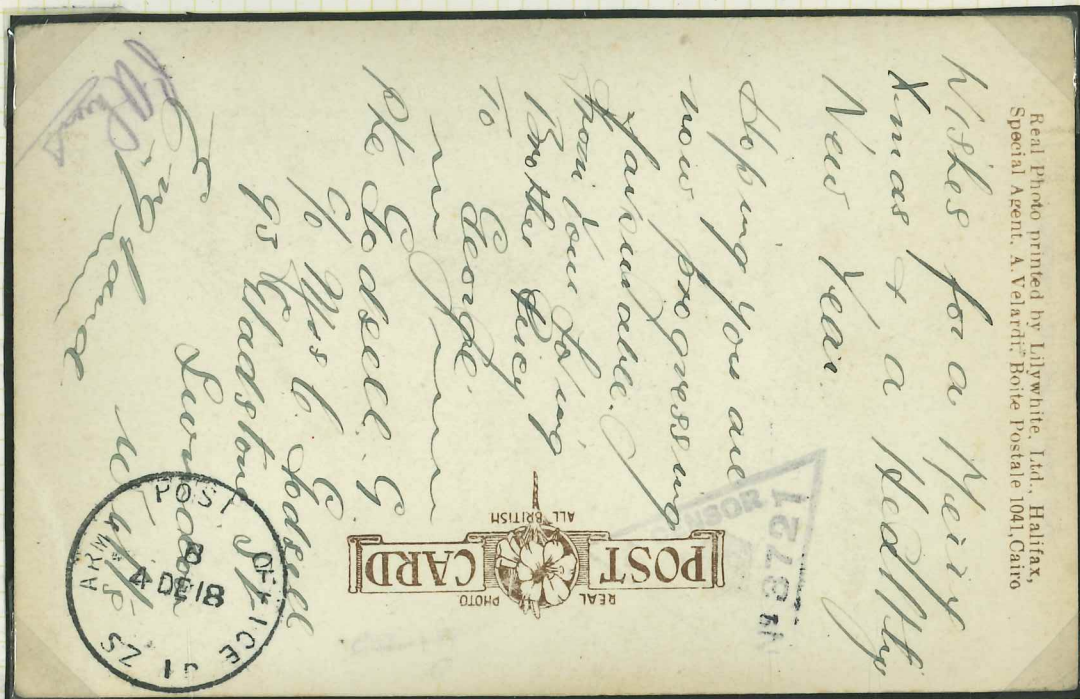 Real Photo printed by Lilywhite, Ltd., Halifax,
Special Agent. A. Velardi, Boite Postale 1041, Cairo
Wishes for a Merry
Xmas + a Healthy
New Year.
Hoping you are
now progressing
favourable.
from Your Loving
Brother Percy
To George.
Pte Godsell. G.
c/o Mrs C. Godsell
95 Gladstone St
Swindon
Wilts
England
REAL PHOTO
POST CARD
ALL BRITISH
CENSOR
3721
ARMY POST OFFICE
B
4 DE 18
SZ 11